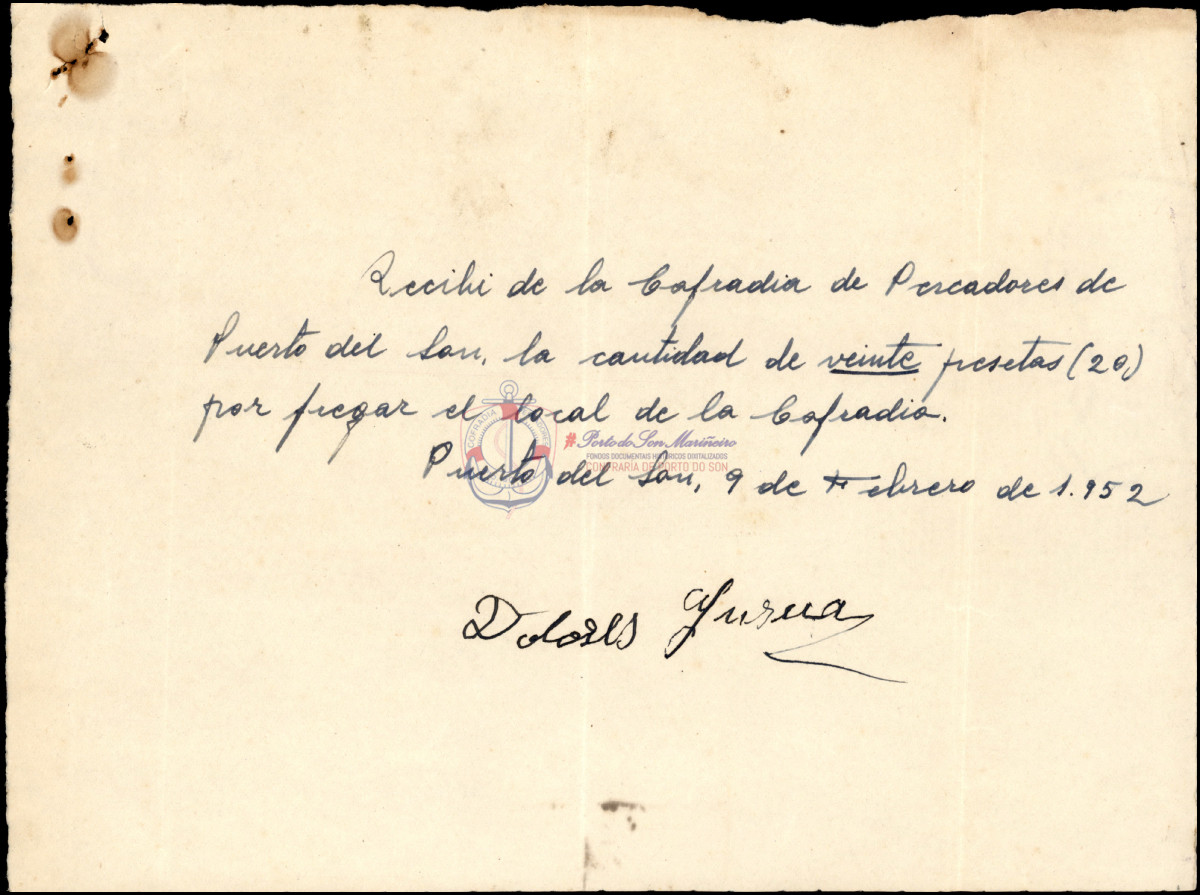 Recibi de la Cofradia de Pescadores de
Puerto del Son, la cantidad de veinte pesetas (20)
por fregar el local de la Cofradia.
#PortodoSon Mariñeiro
FONDOS DOCUMENTAIS HISTÓRICOS DIXITALIZADOS
CONFRARÍA DE PORTO DO SON
Puerto del Son, 9 de Febrero de 1.952
Dolores